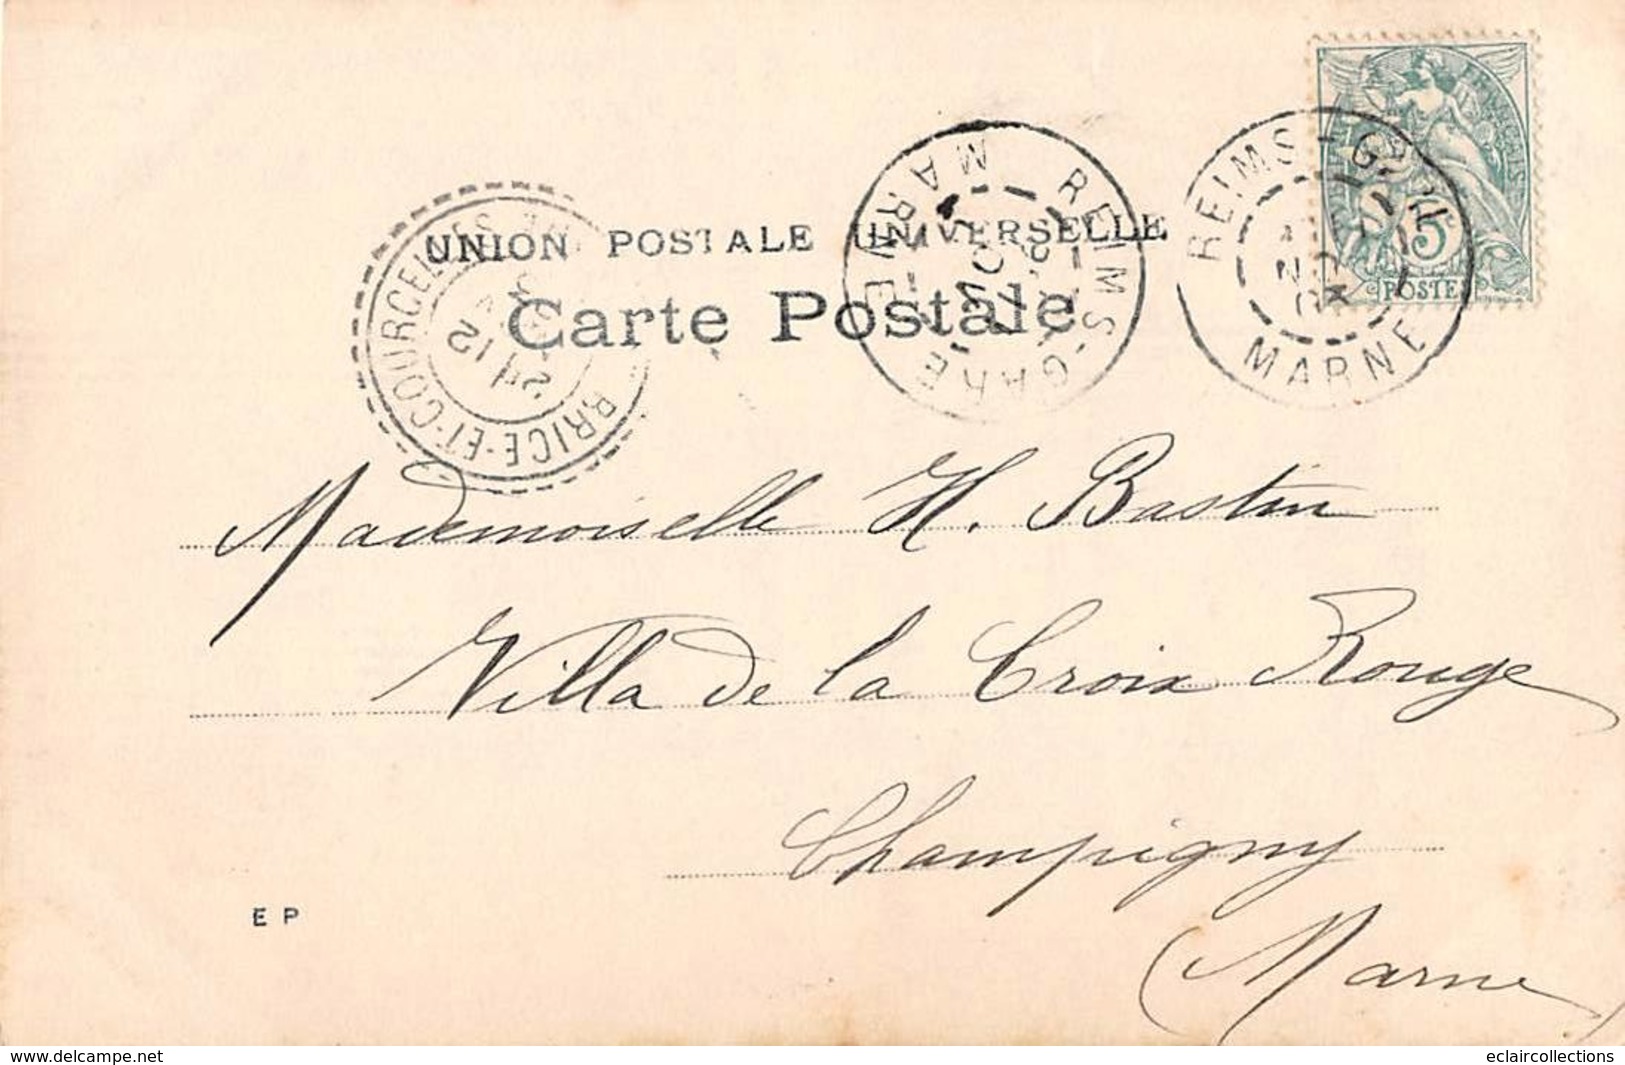 UNION POSTALE UNIVERSELLE
Carte Postale
REIMS-GARE
MARNE
REIMS-GARE
MARNE
BRICE-ET-COURCELLES
12
5
POSTES
Mademoiselle H. Bastin
Villa de la Croix Rouge
Champigny
(Marne)
E P
https://www.delcampe.net
eclaircollections